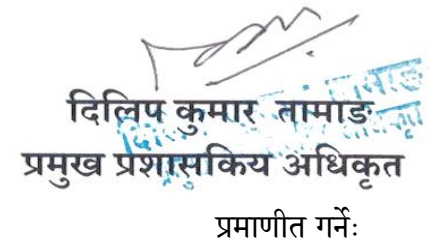 दिलिप कुमार तामाङ
प्रमुख प्रशासकिय अधिकृत
प्रमाणीत गर्नेः